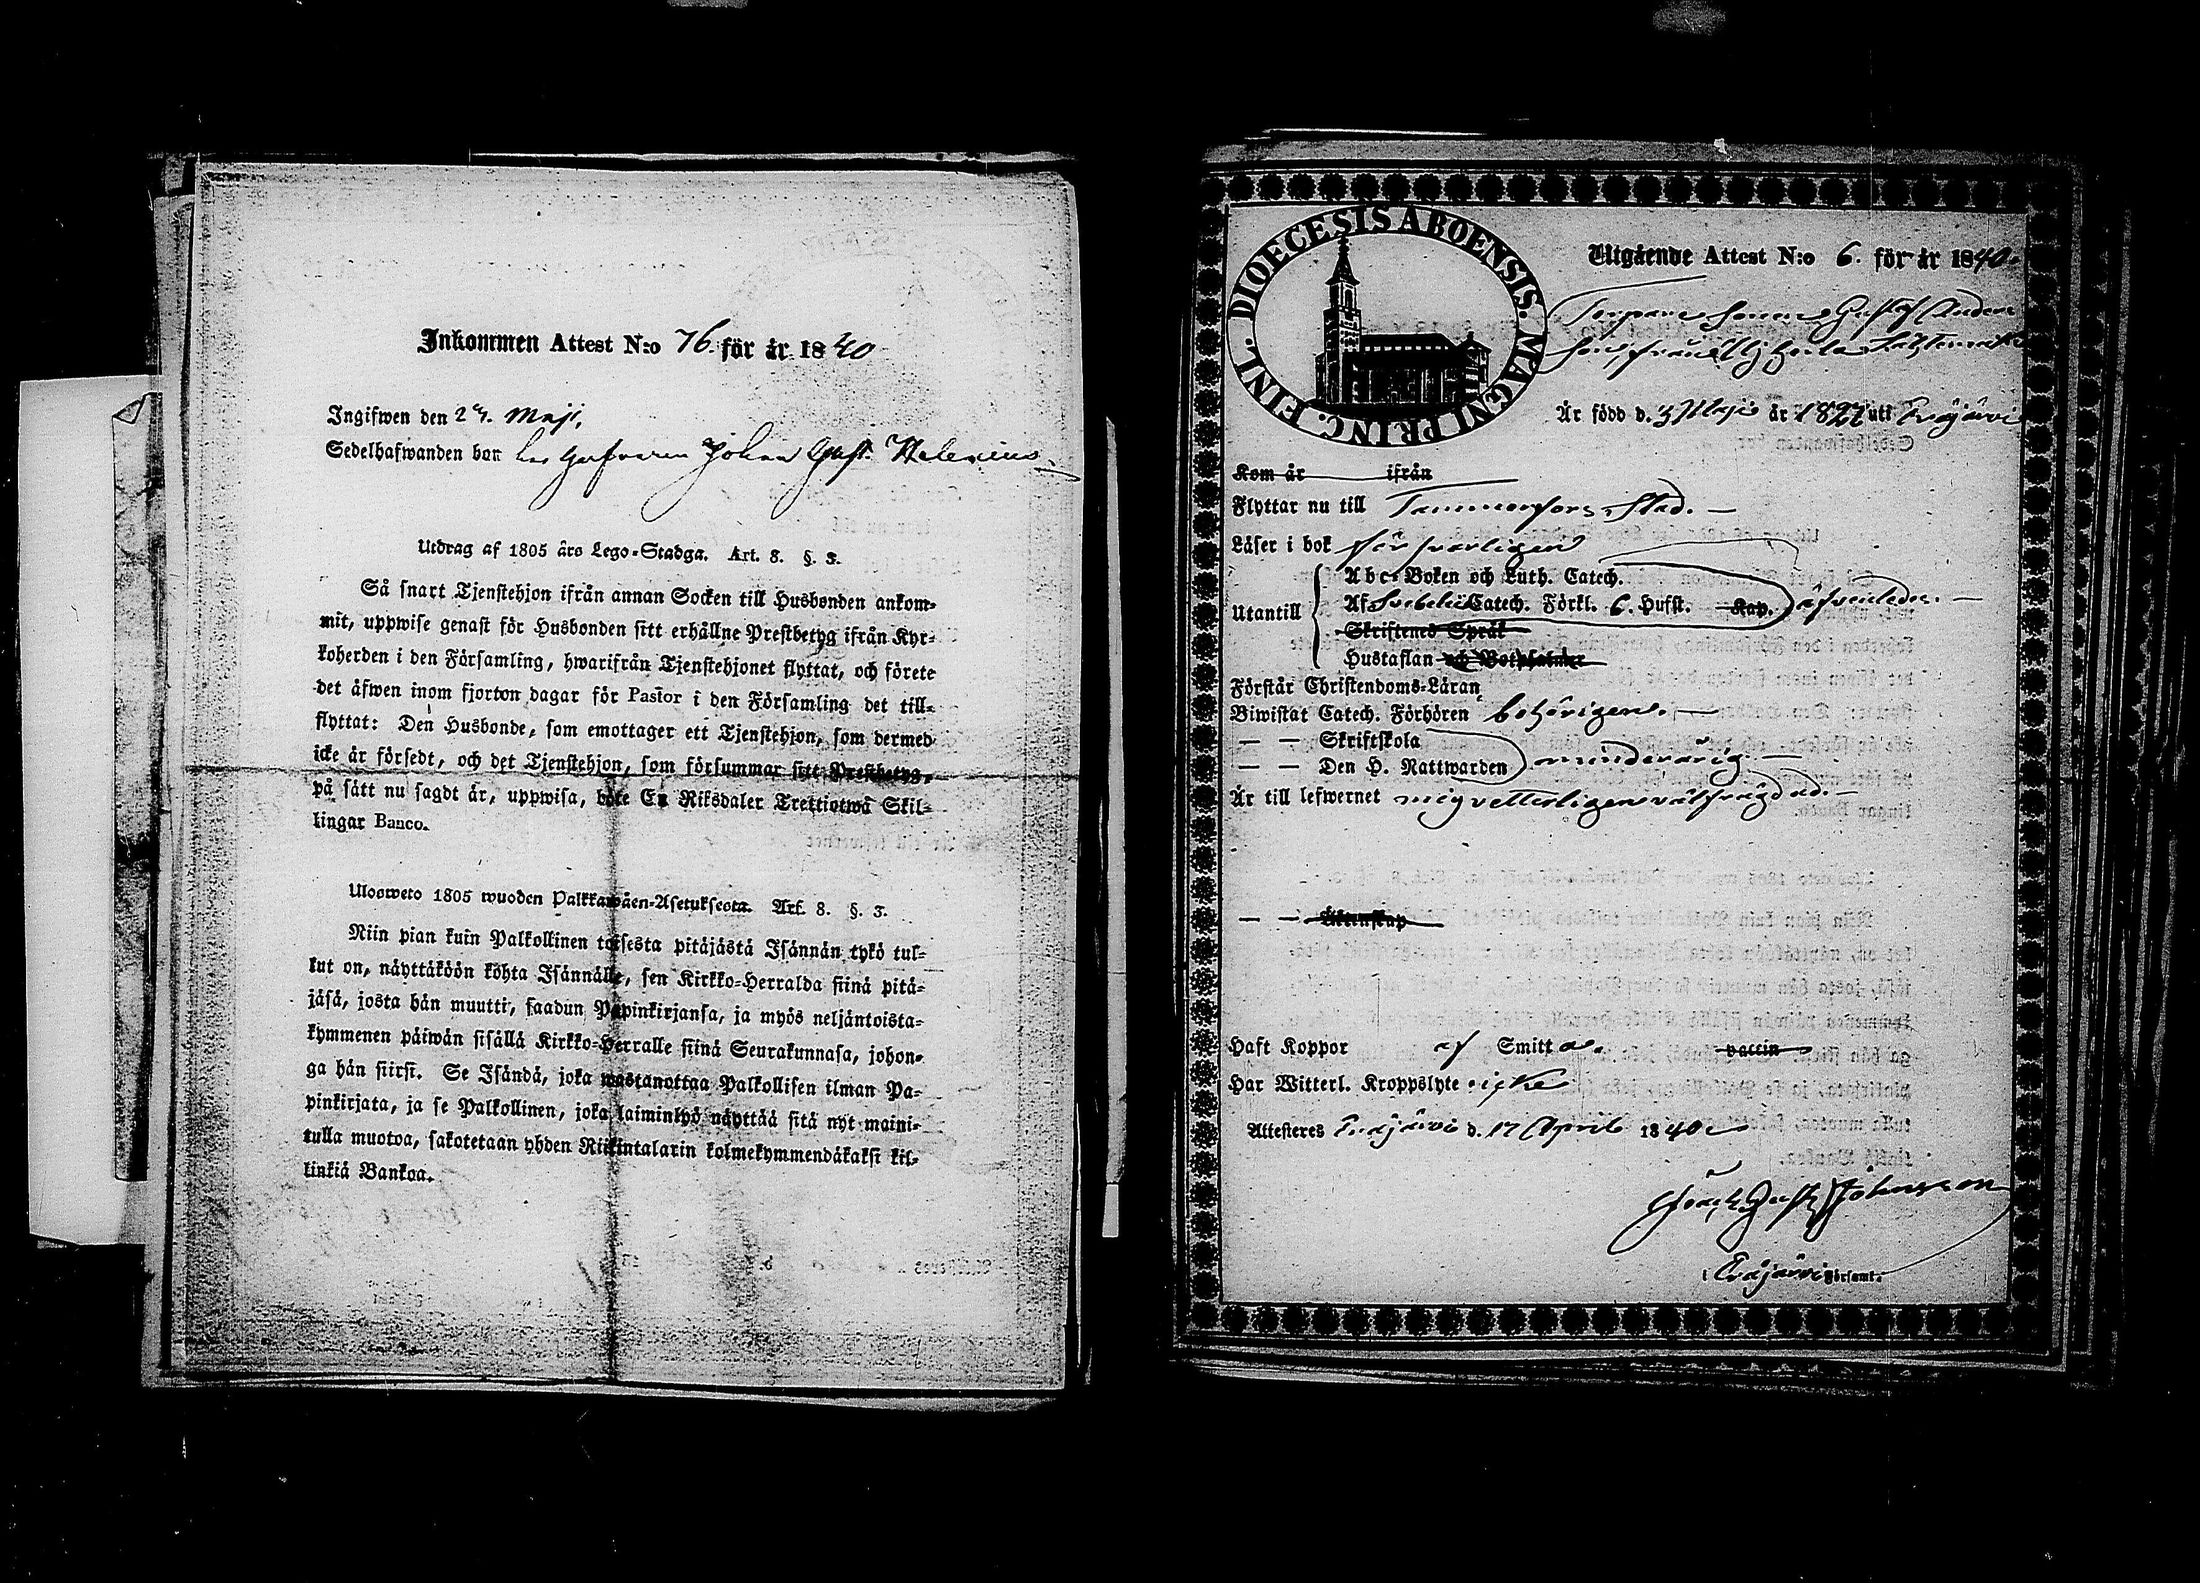 Inkommen Attest N:o 76. för år 1840
Ingifwen den 27. Maji,
Sedelhafwanden bor hos Gafvaren Johan Gust. Helenius
Utdrag af 1805 års Lego-Stadga. Art. 8. §. 3.
Så snart Tjenstehjon ifrån annan Socken till Husbonden ankom-
mit, uppwise genast för Husbonden sitt erhållne Prestbetyg ifrån Kyr-
koherden i den Församling, hwarifrån Tjenstehjonet flyttat, och förete
det äfwen inom fjorton dagar för Pastor i den Församling det till-
flyttat: Den Husbonde, som emottager ett Tjenstehjon, som dermed
icke är försedt, och det Tjenstehjon, som försummar sitt Prestbetyg,
på sätt nu sagdt är, uppwisa, böte En Riksdaler Trettiotwå Skil-
lingar Banco.
Ulosweto 1805 wuoden Palkkawäen-Asetuksesta. Art. 8. §. 3.
Niin pian kuin Palkollinen toisesta pitäjästä Isännän tykö tul-
lut on, näyttäköön kohta Isännälle, sen Kirkko-Herralda siinä pitä-
jäsä, josta hän muutti, saadun Papinkirjansa, ja myös neljäntoista-
kymmenen päiwän sisällä Kirkko-Herralle siinä Seurakunnasa, johon-
ga hän siirsi. Se Isändä, joka wastanottaa Palkollisen ilman Pa-
pinkirjata, ja se Palkollinen, joka laiminlyö näyttää sitä nyt maini-
tulla muotoa, sakotetaan yhden Riikintalarin kolmekymmendäkaksi kil-
linkiä Bankoa.
DIOECESIS ABOENSIS. MAGNI PRINC. FINL.
Utgående Attest N:o 6. för år 1840.
Torpare Sonen Gustaf Anders
Son, från
Är född d. 3 Maji år 1827 uti Eräjärvi
Kom år ifrån
Flyttar nu till Tammerfors Stad.
Läser i bok försvarligen
Abc-Boken och Luth. Catech.
Utantill Af Svebelii Catech. Förkl. 6. Hufst. Kap. äfvenledes.
Skriftenes Språk
Hustaflan och Botpsalmer
Förstår Christendoms-Läran
Biwistat Catech. Förhören behörigen.
— — Skriftskola
— — Den H. Nattwarden minderårig.
Är till lefwernet mig vetterligen välfrägdad.
— — Äktenskap
Haft Koppor af Smitta. vaccin
Har Witterl. Kroppslyte icke
Attesteres Eräjärvi d. 17 April 1840
Gust. Johnsson
i Eräjärvi Församl.